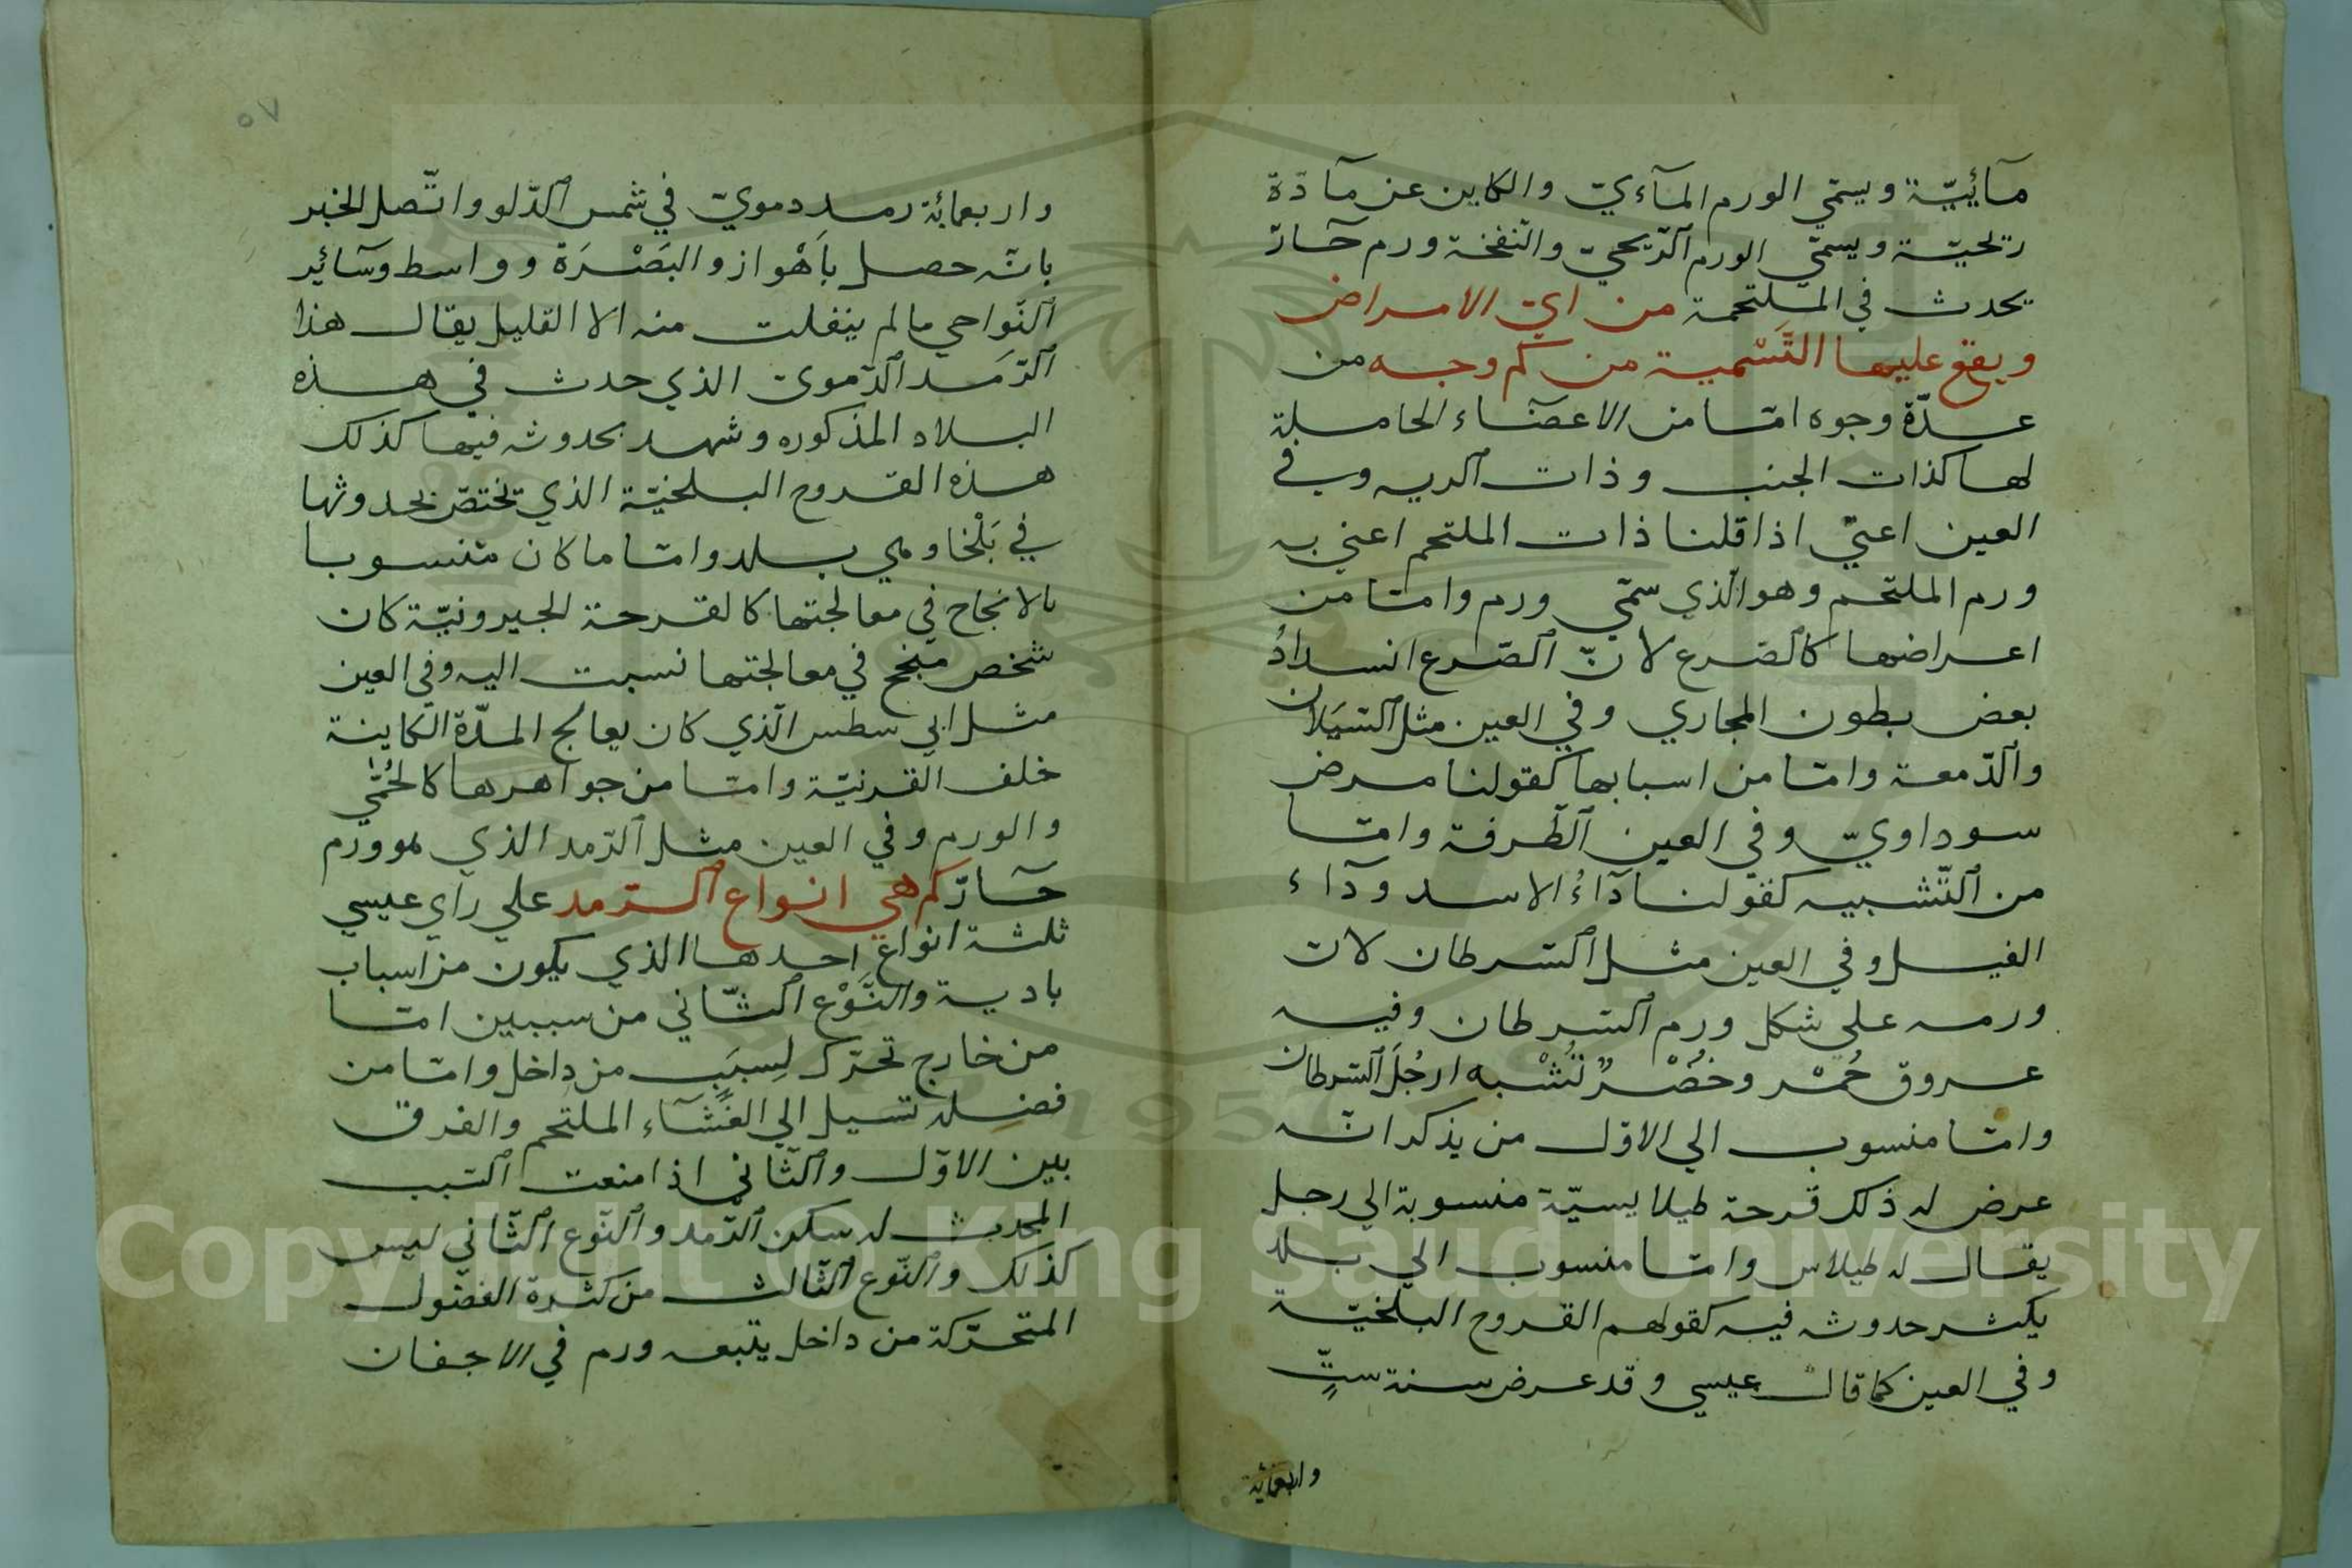 مآئيّة ويسمّي الورم المآءيّ والكاين عن مآدّة
ريحيّة ويسمّي الورم الرّيحيّ والنّفخة ورم حآرّ
يحدث في الملتحمة من ايّ الامراض
ويقع عليها التَّسْمية من كم وجه من
عدّة وجوه امّا من الاعضآء الحاملة
لها كذات الجنب وذات الريه وفي
العين اعنيّ اذا قلنا ذات الملتحم اعني به
ورم الملتحم وهو الّذي سمّي ورم وامّا من
اعراضها كالصّرع لانّ الصّرع انسدادُ
بعض بطون المجاري وفي العين مثل السّيَلان
والدّمعة وامّا من اسبابها كقولنا مرض
سوداويّ وفي العين الطّرفة وامّا
من التّشبيه كقولنا دآءُ الاسد ودآء
الفيل وفي العين مثل السّرطان لان
ورمه علي شكل ورم السّرطان وفيه
عروق حُمْر وخُضْرٌ تُشْبه ارجُلَ السّرطان
وامّا منسوب الي الاوّل من يذكر انّه
عرض له ذلك قرحة طيلايسيّة منسوبة الي رجل
يقال له طيلاس وامّا منسوب الي بلد
يكثر حدوثه فيه كقولهم القروح البلخيّة
وفي العين كما قال عيسي وقد عرض سنة ستّ
واربعمائة
٥٧
واربعمائة رمد دمويّ في شمس الدّلو واتّصل الخبر
بانّه حصل باَهْواز والبَصْرَة وواسط وسآئير
النّواحي ما لم ينفلت منه الا القليل يقال هذا
الرّمَد الدّموي الذي حدث في هذه
البلاد المذكوره وشهد بحدوثه فيها كذلك
هذه القروح البلخيّة الذي تختصّ بحدوثها
في بَلْخا وهي بلد وامّا ما كان منسوبا
بالانجاح في معالجتها كالقرحة الجيرونيّة كان
شخص منجح في معالجتها نسبت اليه وفي العين
مثل ابي سطس الّذي كان يعالج المدّة الكاينة
خلف القرنيّة وامّا من جواهرها كالحُمّي
والورم وفي العين مثل الرّمد الذي هو ورم
حآرّ كم هي انواع الرّمد علي رآي عيسي
ثلثة انواع احدها الذي يكون من اسباب
بادية والنَّوْع الثّاني من سببين امّا
من خارج تحرّك لِسبَبٍ من داخل وامّا من
فضله تسيل الي الغشآء الملتحم والفرق
بين الاوّل والثّاني اذا منعت السّبب
المحدث له سكن الرّمد والنّوع الثّاني ليس
كذلك والنّوع الثّالث من كثرة الفضول
المتحرّكة من داخل يتبعه ورم في الاجفان
Copyright © King Saud University
1957